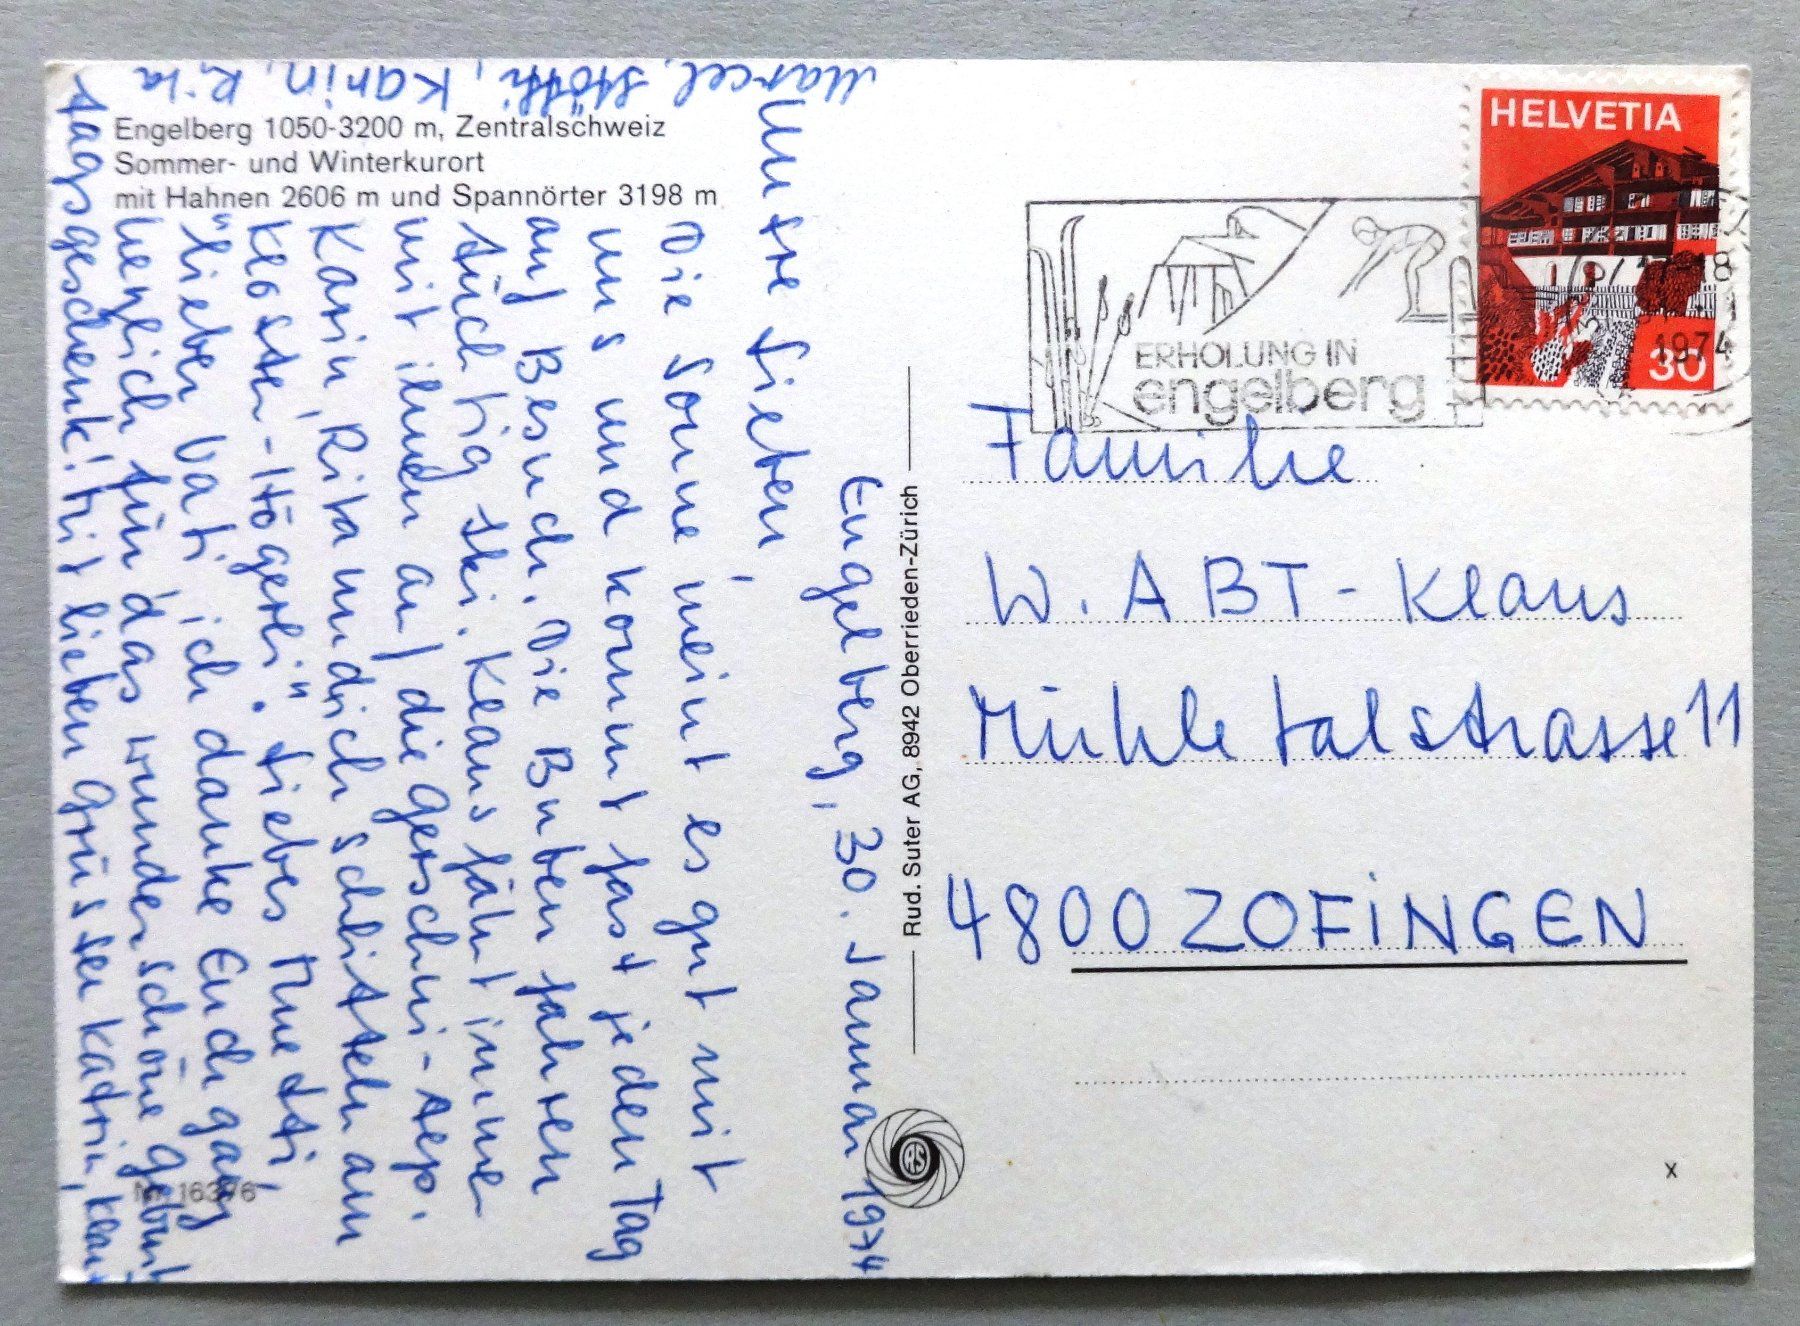 Engelberg 1050-3200 m, Zentralschweiz
Sommer- und Winterkurort
mit Hahnen 2606 m und Spannörter 3198 m
Engelberg, 30. Januar 1974
Unsre Lieben,
Die Sonne meint es gut mit
uns und kommt fast jeden Tag
auf Besuch. Die Buben fahren
tüchtig Ski. Klaus fährt immer
mit ihnen auf die Gerschni-Alp.
Karin, Rita und ich schlitteln am
Kloster-"Högerli". Liebes Muetti,
lieber Vati, ich danke Euch ganz
herzlich für das wunderschöne Geburts
tagsgeschenk! Mit lieben Grüssen Katrin, Klaus,
Marcel, Stöffi, Karin, Rita
Nr. 16376
Rud. Suter AG, 8942 Oberrieden-Zürich
RS
HELVETIA
30
ERHOLUNG IN
engelberg
18
1974
Familie
W. ABT - Klaus
Mühletalstrasse 11
4800 ZOFINGEN
x